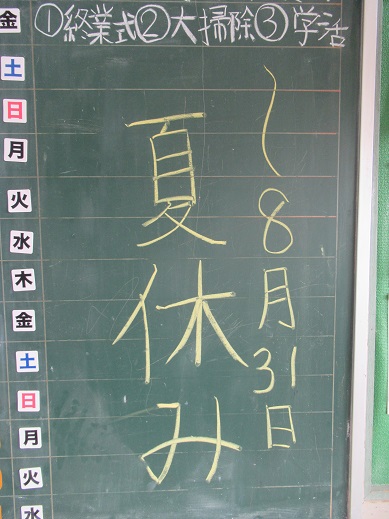 金 ①終業式②大掃除③学活
土
日
月
火
水
木
金
土
日
月
火
水
〜8月31日
夏休み